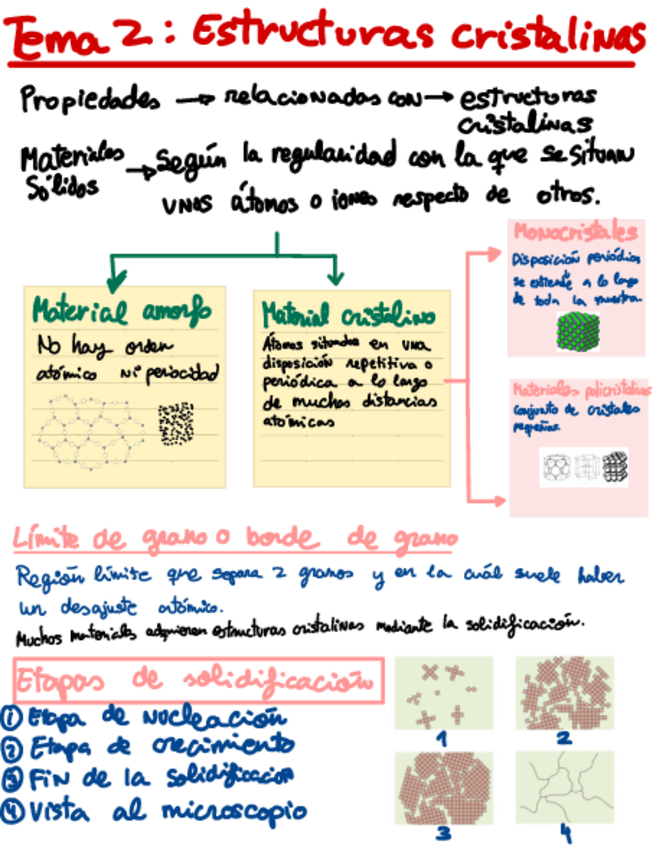 Tema 2: Estructuras cristalinas
Propiedades → relacionadas con → estructuras
cristalinas
Materiales
Sólidos
→ Según la regularidad con la que se situan
unos átomos o iones respecto de otros.
Material amorfo
No hay orden
atómico ni periocidad
Material cristalino
Átomos situados en una
disposición repetitiva o
periódica a lo largo
de muchas distancias
atómicas
Monocristales
Disposición periódica
se extiende a lo largo
de toda la muestra.
Materiales policristalinos
Conjunto de cristales
pequeños
Límite de grano o borde de grano
Región límite que separa 2 granos y en la cuál suele haber
un desajuste atómico.
Muchos materiales adquieren estructuras cristalinas mediante la solidificación.
Etapas de solidificación
① Etapa de nucleación
② Etapa de crecimiento
③ Fin de la solidificación
④ Vista al microscopio
1
2
3
4